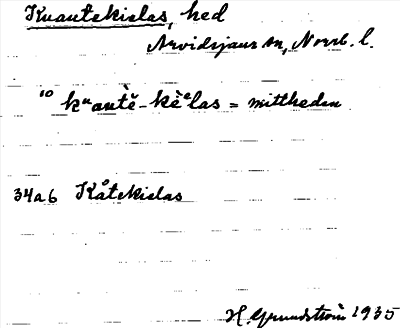 Kuautekielas, hed
Arvidsjaurs sn, Norrb. l.
10 kᵘautè̆-kè̆ᵉlas = mittheden
34a6 Kåtekielas
H. Grundström 1935